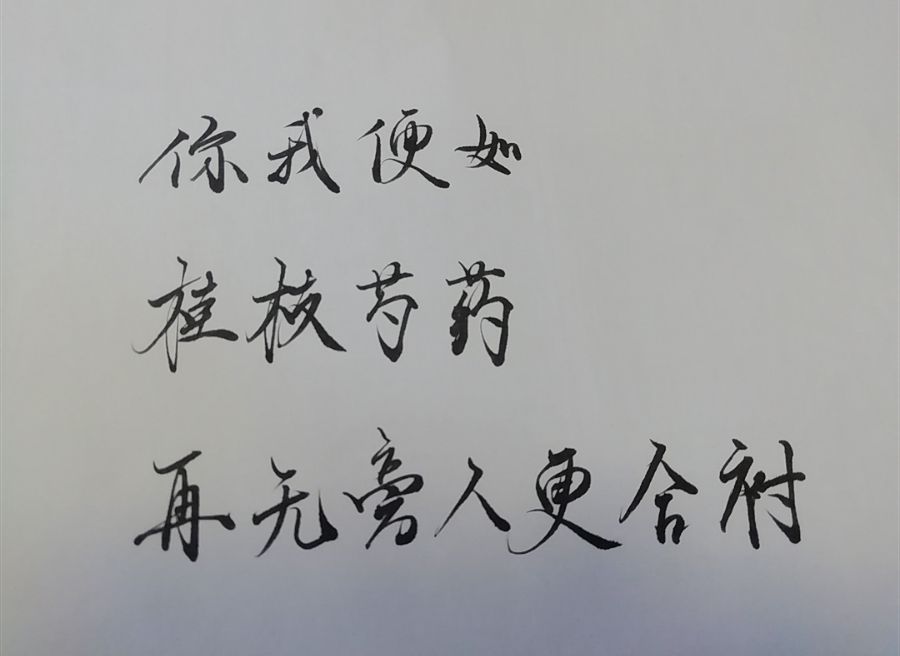 你我便如
桂枝芍药
再无旁人更合衬